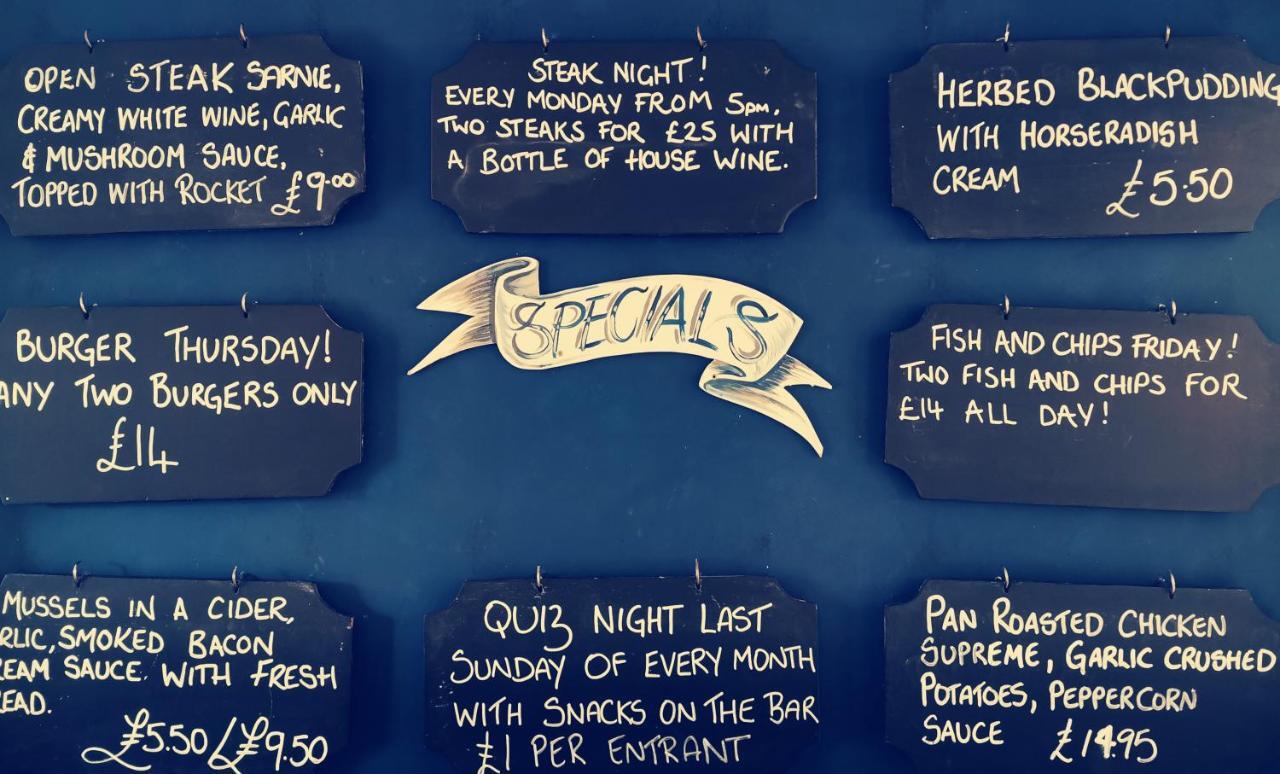 OPEN STEAK SARNIE,
CREAMY WHITE WINE, GARLIC
& MUSHROOM SAUCE,
TOPPED WITH ROCKET £9.00
STEAK NIGHT!
EVERY MONDAY FROM 5pm,
TWO STEAKS FOR £25 WITH
A BOTTLE OF HOUSE WINE.
HERBED BLACKPUDDING
WITH HORSERADISH
CREAM £5.50
SPECIALS
BURGER THURSDAY!
ANY TWO BURGERS ONLY
£14
FISH AND CHIPS FRIDAY!
TWO FISH AND CHIPS FOR
£14 ALL DAY!
MUSSELS IN A CIDER,
RLIC, SMOKED BACON
EAM SAUCE. WITH FRESH
EAD.
£5.50/£9.50
QUIZ NIGHT LAST
SUNDAY OF EVERY MONTH
WITH SNACKS ON THE BAR
£1 PER ENTRANT
PAN ROASTED CHICKEN
SUPREME, GARLIC CRUSHED
POTATOES, PEPPERCORN
SAUCE £14.95